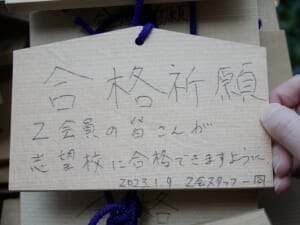 合格祈願
Z会員の皆さんが
志望校に合格できますように。
2023.1.9 Z会スタッフ一同